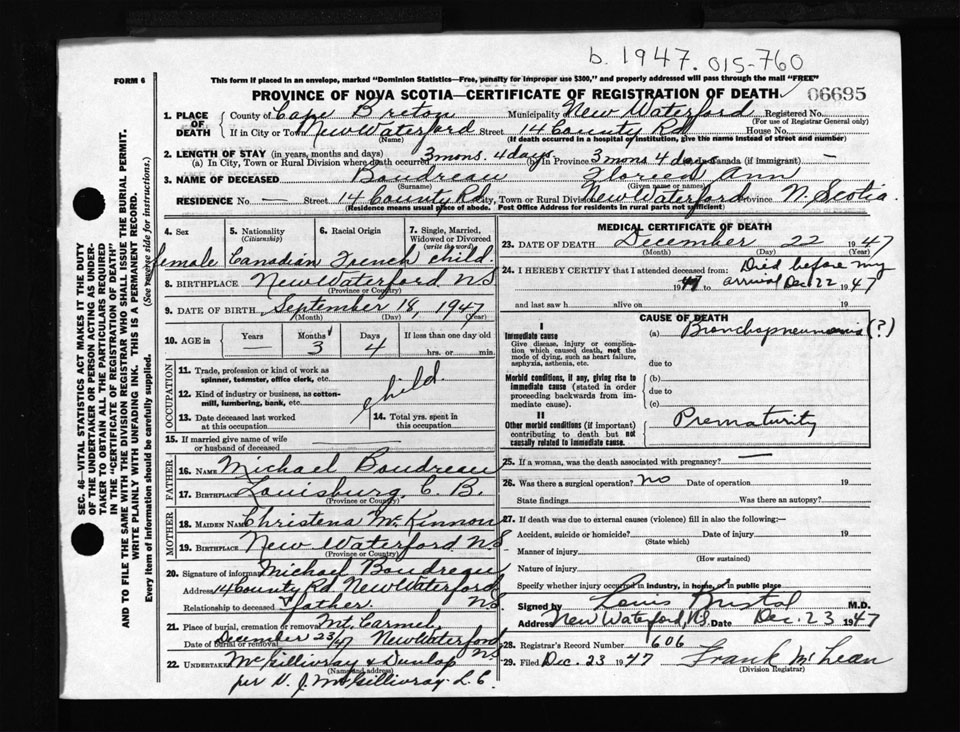 b. 1947.015-760
FORM 6
This form if placed in an envelope, marked "Dominion Statistics—Free, penalty for improper use $300," and properly addressed will pass through the mail "FREE"
PROVINCE OF NOVA SCOTIA—CERTIFICATE OF REGISTRATION OF DEATH
06695
1. PLACE OF DEATH
County of Cape Breton Municipality New Waterford Registered No.
(For use of Registrar General only)
If in City or Town New Waterford Street 14 County Rd House No.
(Name) (If death occurred in a hospital of institution, give the name instead of street and number)
2. LENGTH OF STAY (in years, months and days)
(a) In City, Town or Rural Division where death occurred 3 mons. 4 days (b) in Province 3 mons 4 days Canada (if immigrant) —
3. NAME OF DECEASED Boudreau Ann
(Surname) (Given name or names)
RESIDENCE No. — Street 14 County Rd City, Town or Rural Division New Waterford Province N. Scotia
(Residence means usual place of abode. Post Office Address for residents in rural parts not sufficient)
4. Sex 5. Nationality (Citizenship) 6. Racial Origin 7. Single, Married, Widowed or Divorced (write the word)
female Canadian French child.
8. BIRTHPLACE New Waterford N.S
(Province or Country)
9. DATE OF BIRTH September 18, 1947
(Month) (Day) (Year)
10. AGE in Years Months Days If less than one day old
— 3 4 hrs. or min.
OCCUPATION
11. Trade, profession or kind of work as spinner, teamster, office clerk, etc.
12. Kind of industry or business, as cotton-mill, lumbering, bank, etc.
child.
13. Date deceased last worked at this occupation
14. Total yrs. spent in this occupation
15. If married give name of wife or husband of deceased
FATHER
16. NAME Michael Boudreau
17. BIRTHPLACE Louisburg, C. B.
(Province or Country)
MOTHER
18. MAIDEN NAME Christena McKinnon
19. BIRTHPLACE New Waterford N.S
(Province or Country)
20. Signature of informant Michael Boudreau
Address 14 County Rd. New Waterford NS
Relationship to deceased father.
21. Place of burial, cremation or removal Mt. Carmel,
Date of burial or removal December 23/47 New Waterford NS
22. UNDERTAKER McGillivray & Dunlop
(Name and address)
per N. J. McGillivray L.E.
MEDICAL CERTIFICATE OF DEATH
23. DATE OF DEATH December 22 1947
(Month) (Day) (Year)
24. I HEREBY CERTIFY that I attended deceased from: Died before my
1947 to arrival Dec 22 1947
and last saw h alive on 19
CAUSE OF DEATH
I
Immediate cause
Give disease, injury or complication which caused death, not the mode of dying, such as heart failure, asphyxia, asthenia, etc.
(a) Bronchopneumonia (?)
due to
Morbid conditions, if any, giving rise to immediate cause (stated in order proceeding backwards from immediate cause).
(b)
due to
(c)
II
Other morbid conditions (if important) contributing to death but not causally related to immediate cause.
Prematurity
25. If a woman, was the death associated with pregnancy? —
26. Was there a surgical operation? no Date of operation 19
State findings Was there an autopsy?
27. If death was due to external causes (violence) fill in also the following:—
Accident, suicide or homicide? Date of injury 19
(State which)
Manner of injury
(How sustained)
Nature of injury
Specify whether injury occurred in industry, in home, or in public place
Signed by Lewis M.D.
Address New Waterford, N.S. Date Dec. 23 1947
28. Registrar's Record Number 606
29. Filed Dec. 23 1947 Frank McLean
(Division Registrar)
SEC. 46—VITAL STATISTICS ACT MAKES IT THE DUTY
OF THE UNDERTAKER OR PERSON ACTING AS UNDERTAKER
TO OBTAIN ALL THE PARTICULARS REQUIRED
IN THE "CERTIFICATE OF REGISTRATION OF DEATH"
AND TO FILE THE SAME WITH THE DIVISION REGISTRAR WHO SHALL ISSUE THE BURIAL PERMIT.
WRITE PLAINLY WITH UNFADING INK. THIS IS A PERMANENT RECORD.
Every item of information should be carefully supplied. (See reverse side for instructions.)